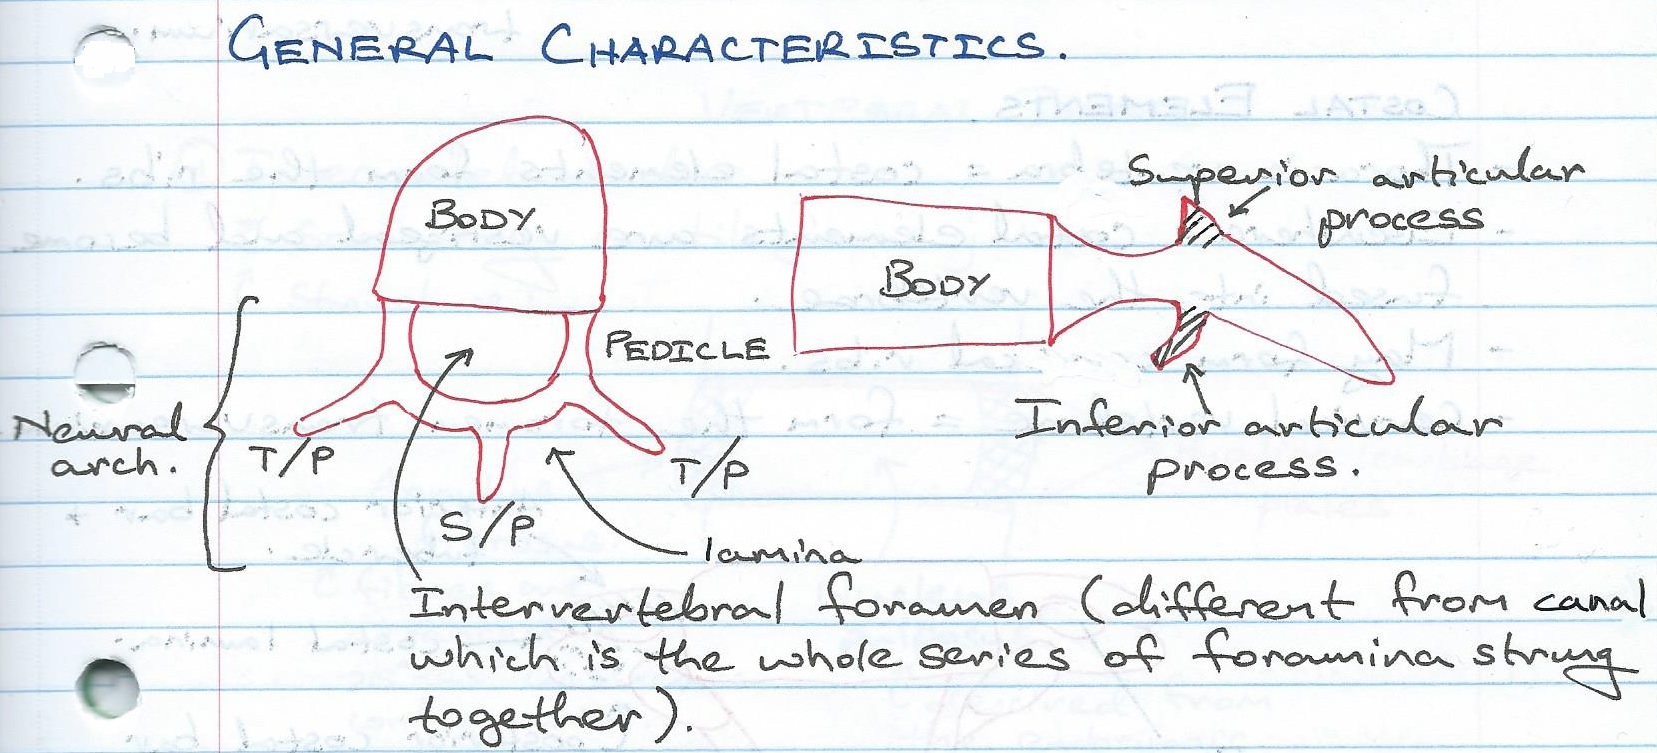 GENERAL CHARACTERISTICS.
BODY
PEDICLE
Neural
arch.
T/P
T/P
S/P
lamina
Superior articular
process
BODY
Inferior articular
process.
Intervertebral foramen (different from canal
which is the whole series of foramina strung
together).